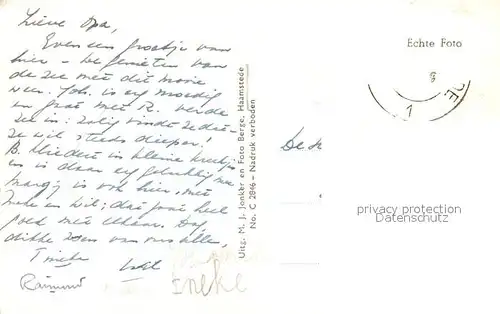 Lieve Opa,
Even een groetje van
hier – We genieten van
de zee met dit mooie
weer. Joh. is erg moedig
en gaat met R. verde
zee in: zalig vindt ze dat
ze wil steeds dieper!
B. kliedert in kleine
en is daar erg gelukkig mee
Margj is ook hier, met
en Wil; dat gaat heel
goed met elkaar. Dag
dikke zoen van ons alle,
Tineke
Raimond
Ineke
Uitg. M. J. Jonker en Foto Berge, Haamstede
No. C 2846 – Nadruk verboden
Echte Foto
De
privacy protection
AKPOOL.DE